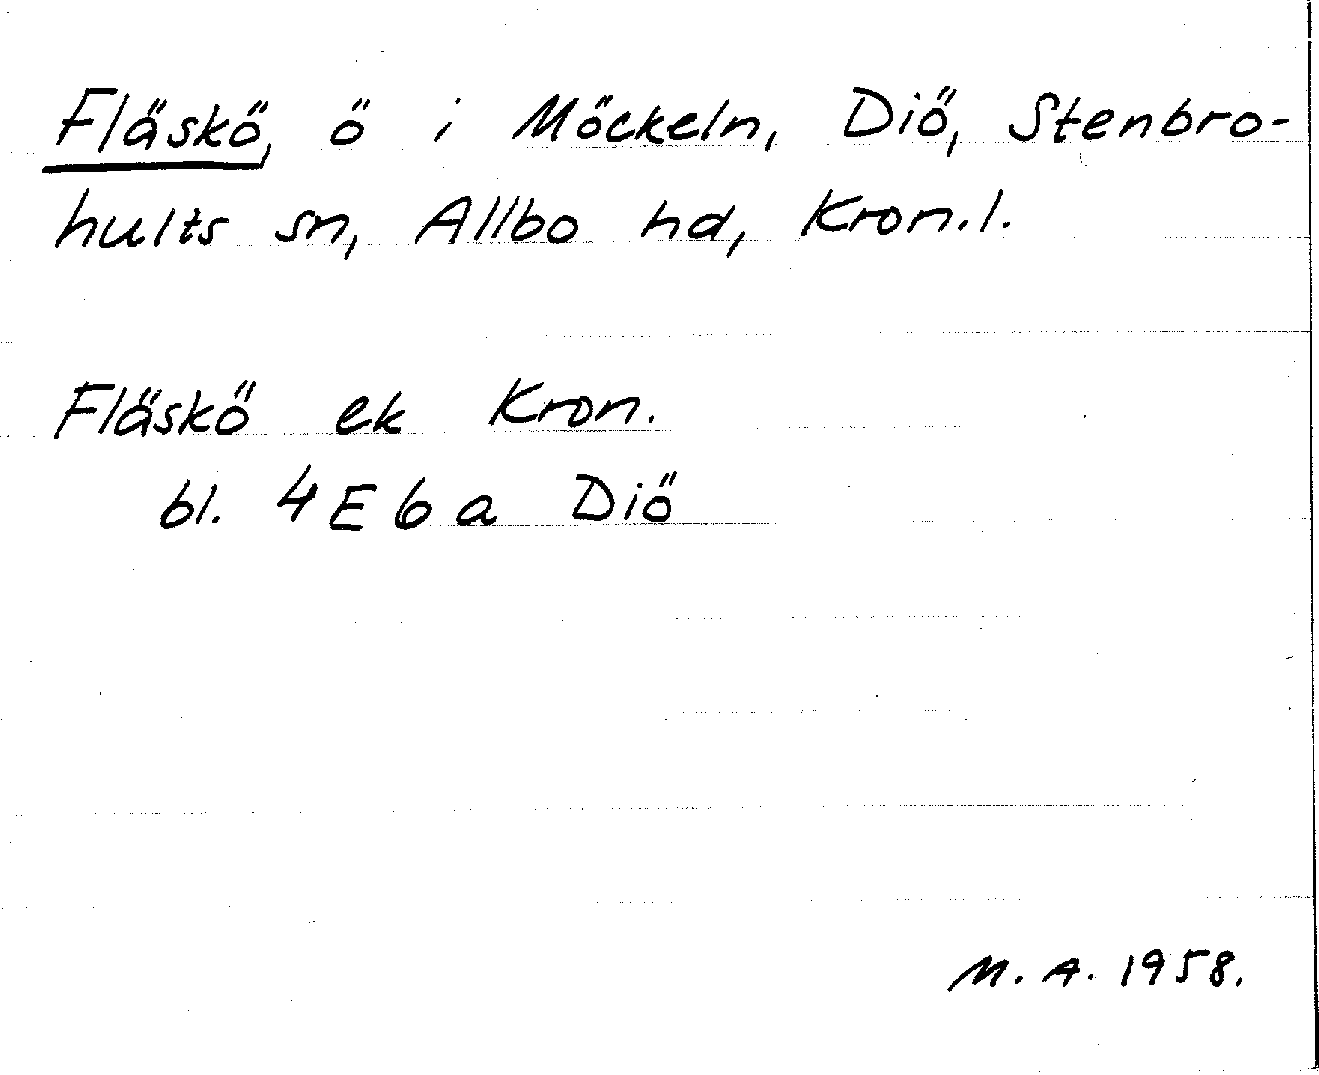 Fläskö, ö i Möckeln, Diö, Stenbro-
hults sn, Allbo hd, Kron.l.
Fläskö ek Kron.
bl. 4 E 6 a Diö
M. A. 1958.